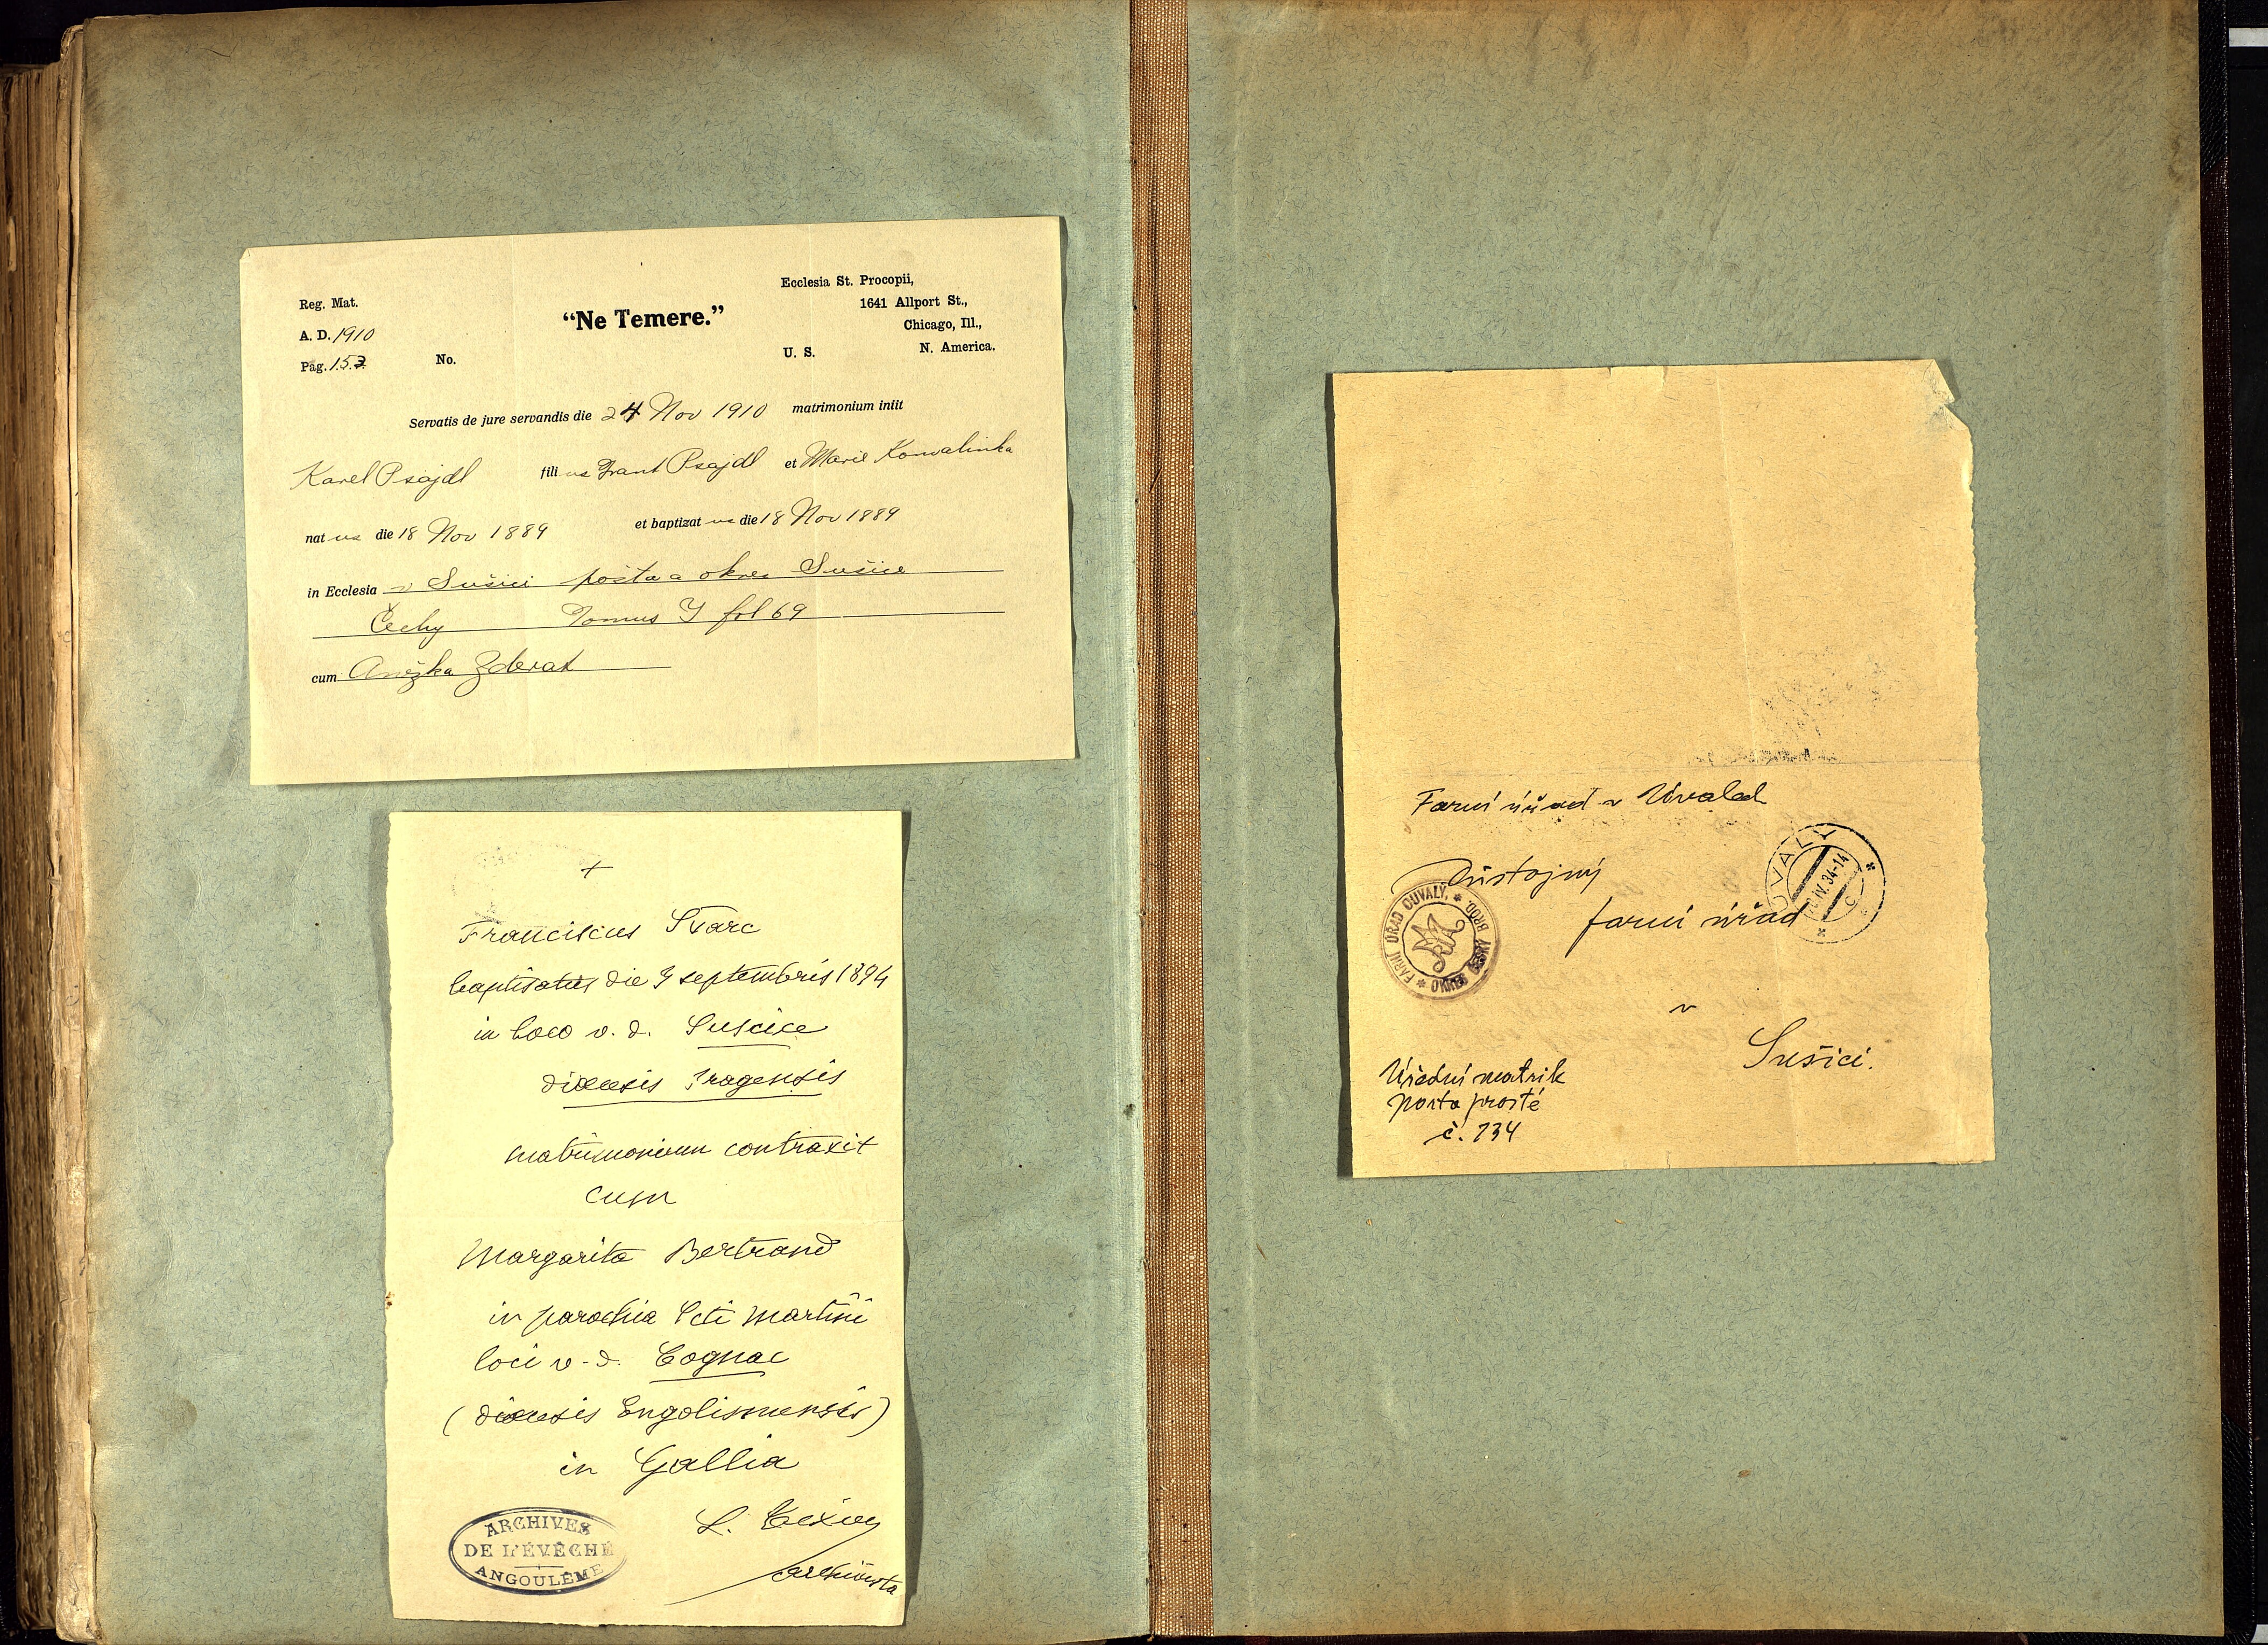 Reg. Mat.
A. D. 1910
Pag. 153.
No.
“Ne Temere.”
Ecclesia St. Procopii,
1641 Allport St.,
Chicago, Ill.,
U. S. N. America.
Servatis de jure servandis die 24 Nov 1910 matrimonium iniit
Karel Psajdl filius Frant Psajdl et Marie Kowalinka
natus die 18 Nov 1889 et baptizatus die 18 Nov 1889
in Ecclesia v Sušici pošta a okres Sušice
Čechy Tomus I fol 69
cum Anežka Zderat
+
Franciscus Starc
baptisatus die 9 septembris 1894
in loco v. d. Suscice
diœcesis Pragensis
matrimonium contraxit
cum
Margarita Bertrand
in parochia Scti Martini
loci v. d. Cognac
(diœcesis Engolismensis)
in Gallia
archivista
ARCHIVES
DE L'ÉVÊCHÉ
ANGOULÊME
Farní úřad v Úvalech
Důstojný
farní úřad
v
Sušici.
Úřední matrik
porta prosté
č. 734
FARNÍ ÚŘAD OUVALY, ČESKÝ BROD
ÚVALY
IV. 34-14